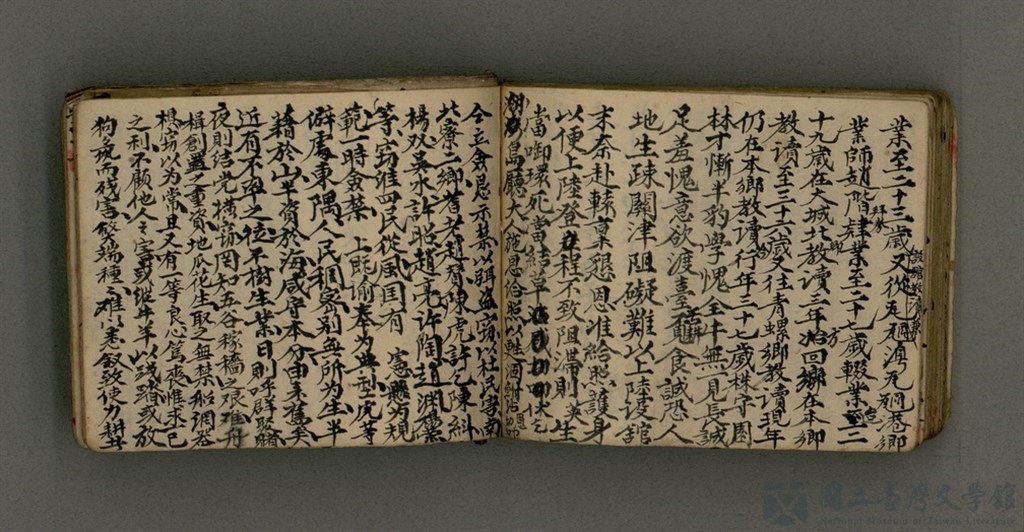 業至二十三歲又往廷迴濱元迴巷鄉
業師趙階肄業至二十七歲輟業至二
十九歲在大城北教讀三年始回鄉在本鄉
教讀至三十六歲又往青螺鄉教讀現年
仍在本鄉教讀行年三十七歲株守園
林才慚半豹學愧全牛無一見長誠
足羞愧意欲渡臺覓食誠恐人
地生疎關津阻礙難以上陸投舘
求奈赴轅稟懇恩准給照護身
以便上陸登程不致阻滯則英生
當啣環死當結草
湖島廳大人施恩給照以甦涸鮒
仝立禽忌示禁以弭盜竊以杜民害南
北寮二鄉耆老趙督陳虎許乞陳糾
楊双吳水許昭趙亮許陶趙淵黨
等竊維四民從風国有憲懸為規
範一時禽禁上既諭奉為典型虎等
僻處東隅人民稠密別無所為生半
藉於山半資於海咸守本分由來舊矣
近有不率之徒不樹生業日則呼群聚賭
夜則結党橫竊罔知五谷稼穡之艱難舟
楫創置之重資地瓜花生取之無禁船調器
椇窃以為常且又有一等良心篤喪惟求己
之利不顧他人之害或縱牛羊以踐踏或放
狗彘而殘害弊端種種難悉叙致使力耕